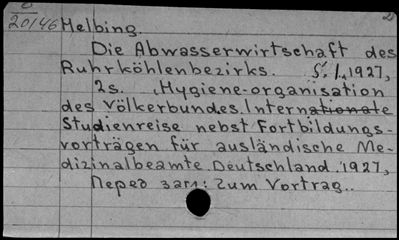 20146 Helbing.
Die Abwasserwirtschaft des
Ruhrköhlenbezirks. S. l., 1927,
2s. (Hygiene-organisation
des Völkerbundes. Internationale
Studienreise nebst Fortbildungs-
vorträgen für ausländische Me-
dizinalbeamte. Deutschland. 1927,
Перед загл: Zum Vortrag..